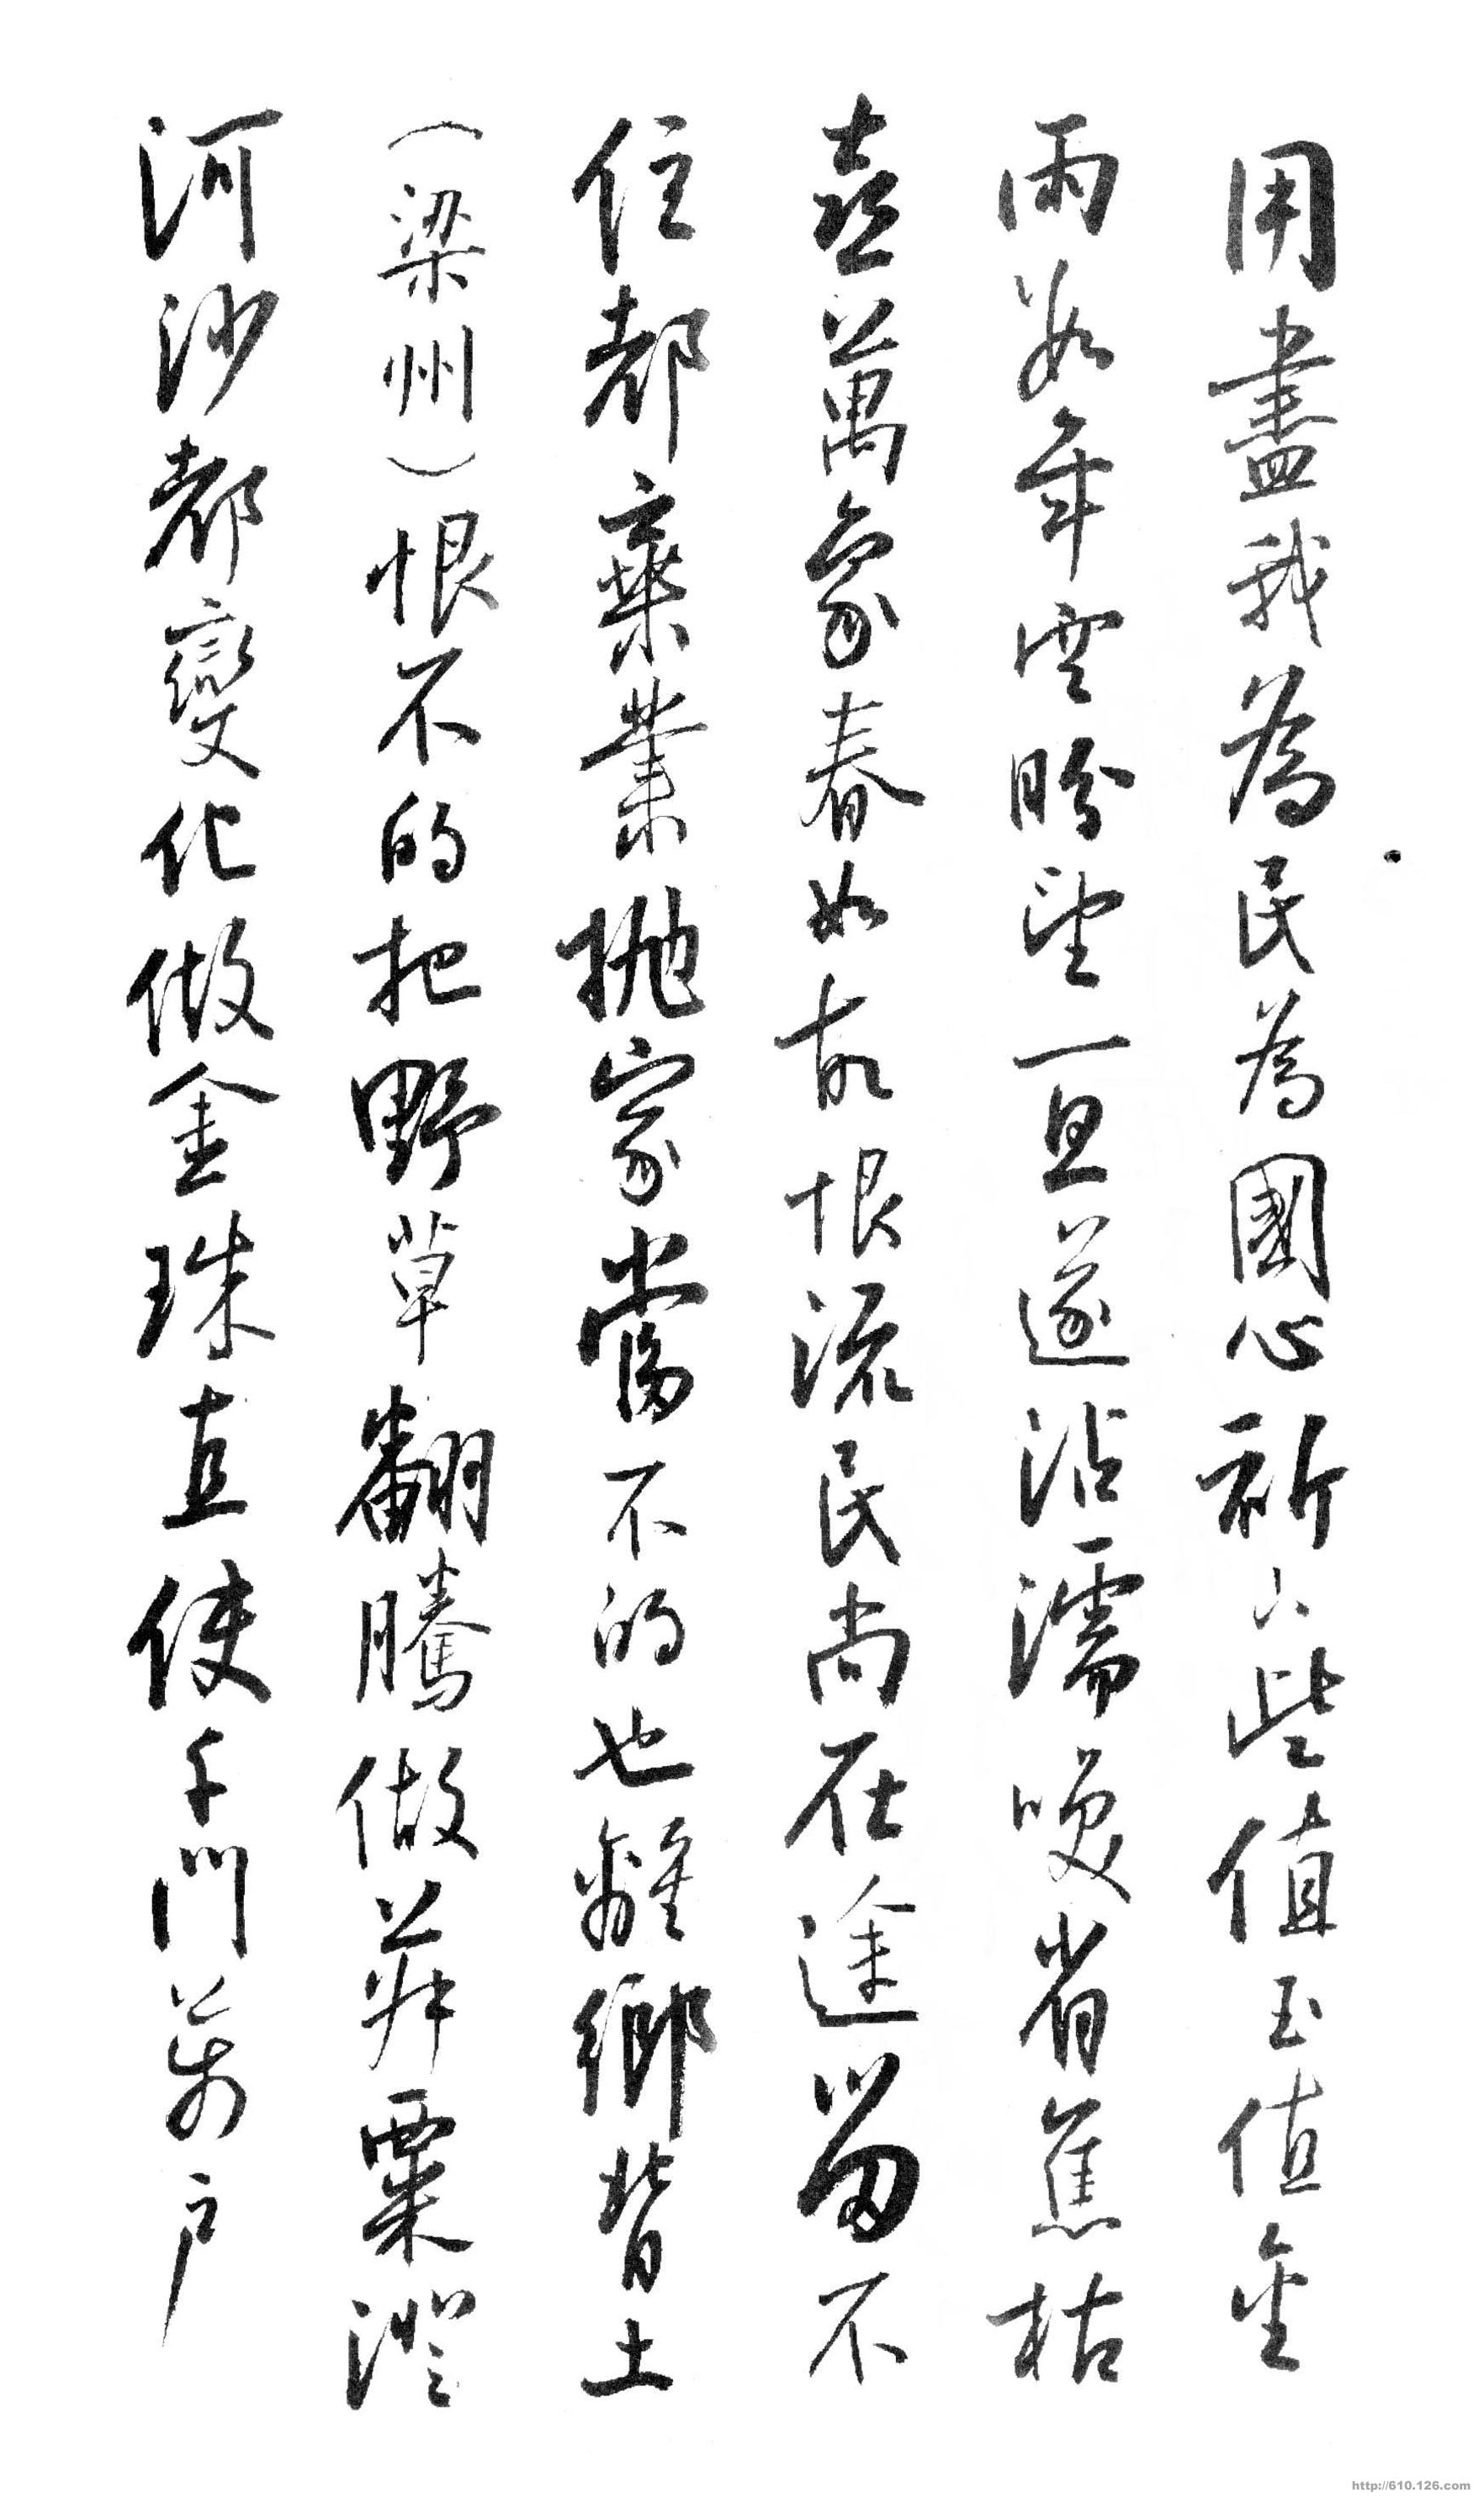 用盡我為民為國心祈下些值玉值金
雨數年空盼望一旦遂沾濡喚省焦枯
喜萬象春如故恨流民尚在途留不
住都棄業拋家當不的也離鄉背土
（梁州）恨不的把野草翻騰做菽粟澄
河沙都變化做金珠直使千門萬户
http://610.126.com